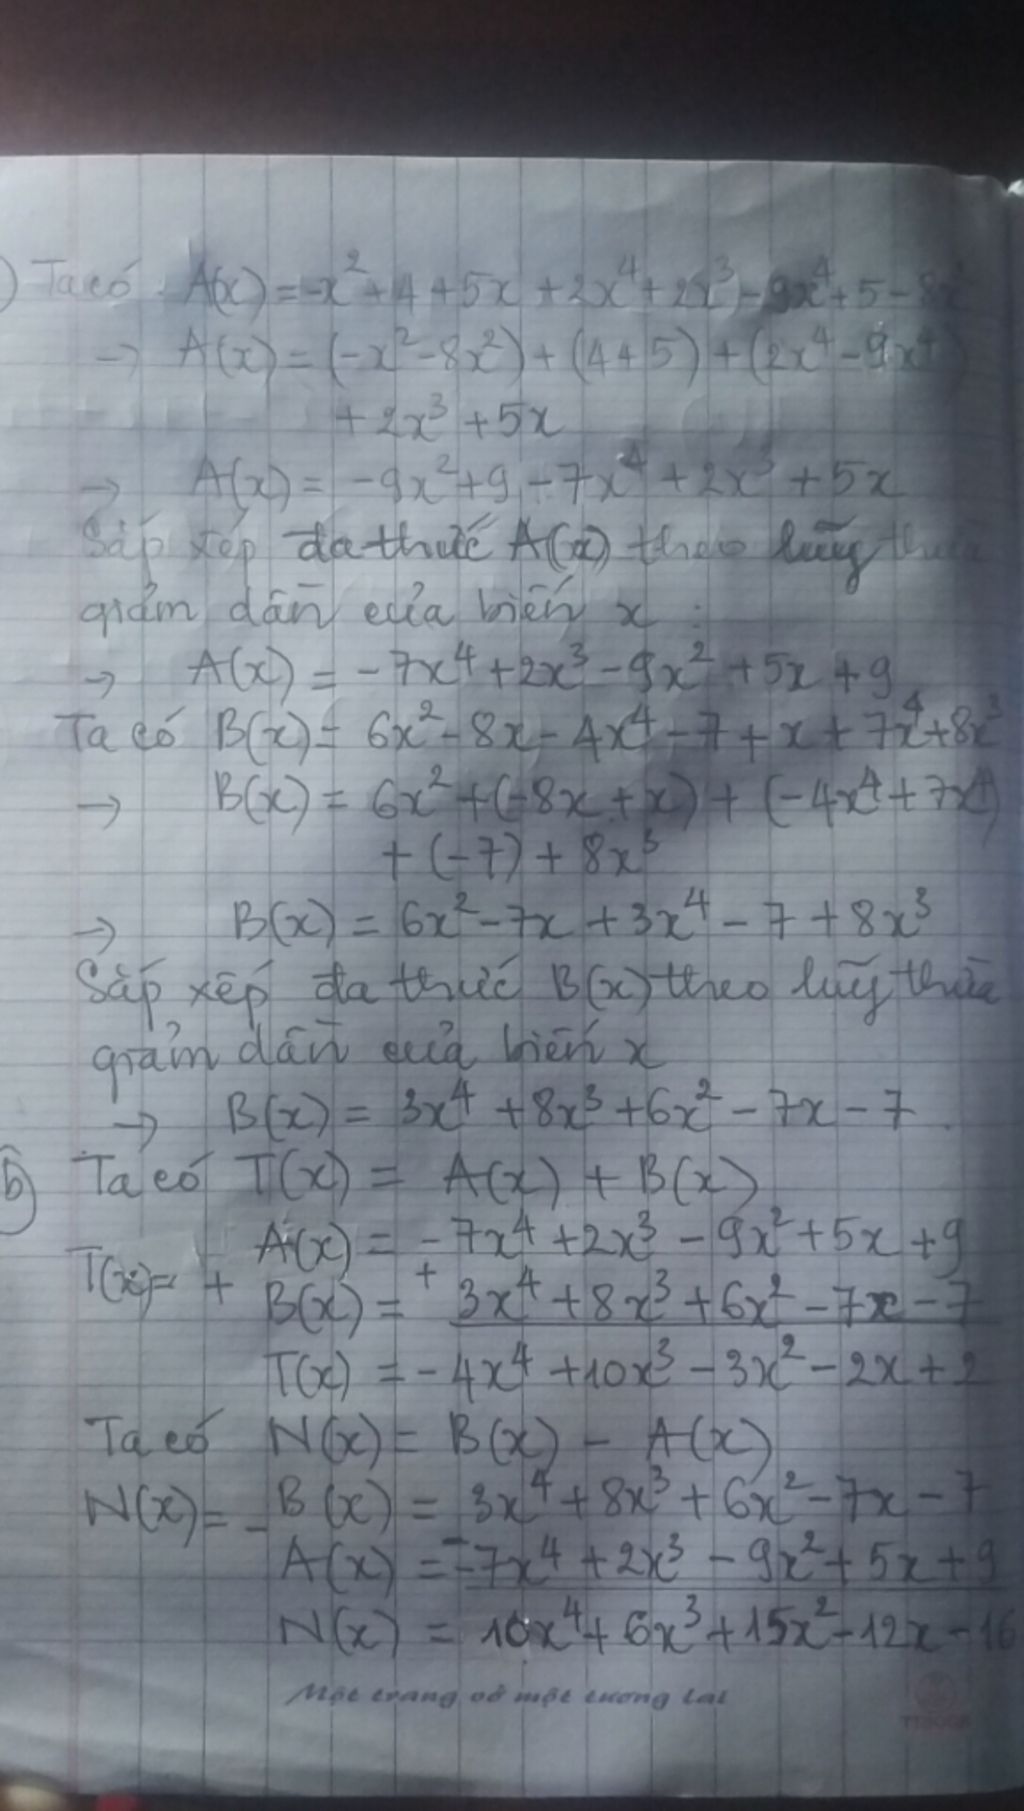 ) Ta có A(x) = -x² + 4 + 5x + 2x⁴ + 2x³ - 9x⁴ + 5 - 8x²
→ A(x) = (-x² - 8x²) + (4 + 5) + (2x⁴ - 9x⁴)
+ 2x³ + 5x
→ A(x) = -9x² + 9 - 7x⁴ + 2x³ + 5x
Sắp xếp đa thức A(x) theo lũy thừa
giảm dần của biến x :
→ A(x) = -7x⁴ + 2x³ - 9x² + 5x + 9
Ta có B(x) = 6x² - 8x - 4x⁴ - 7 + x + 7x⁴ + 8x³
→ B(x) = 6x² + (-8x + x) + (-4x⁴ + 7x⁴)
+ (-7) + 8x³
→ B(x) = 6x² - 7x + 3x⁴ - 7 + 8x³
Sắp xếp đa thức B(x) theo lũy thừa
giảm dần của biến x
→ B(x) = 3x⁴ + 8x³ + 6x² - 7x - 7
b) Ta có T(x) = A(x) + B(x)
A(x) = -7x⁴ + 2x³ - 9x² + 5x + 9
T(x) = + +
B(x) = 3x⁴ + 8x³ + 6x² - 7x - 7
T(x) = -4x⁴ + 10x³ - 3x² - 2x + 2
Ta có N(x) = B(x) - A(x)
N(x) = - B(x) = 3x⁴ + 8x³ + 6x² - 7x - 7
A(x) = - -7x⁴ + 2x³ - 9x² + 5x + 9
N(x) = 10x⁴ + 6x³ + 15x² - 12x - 16
Một trang vở một tương lai